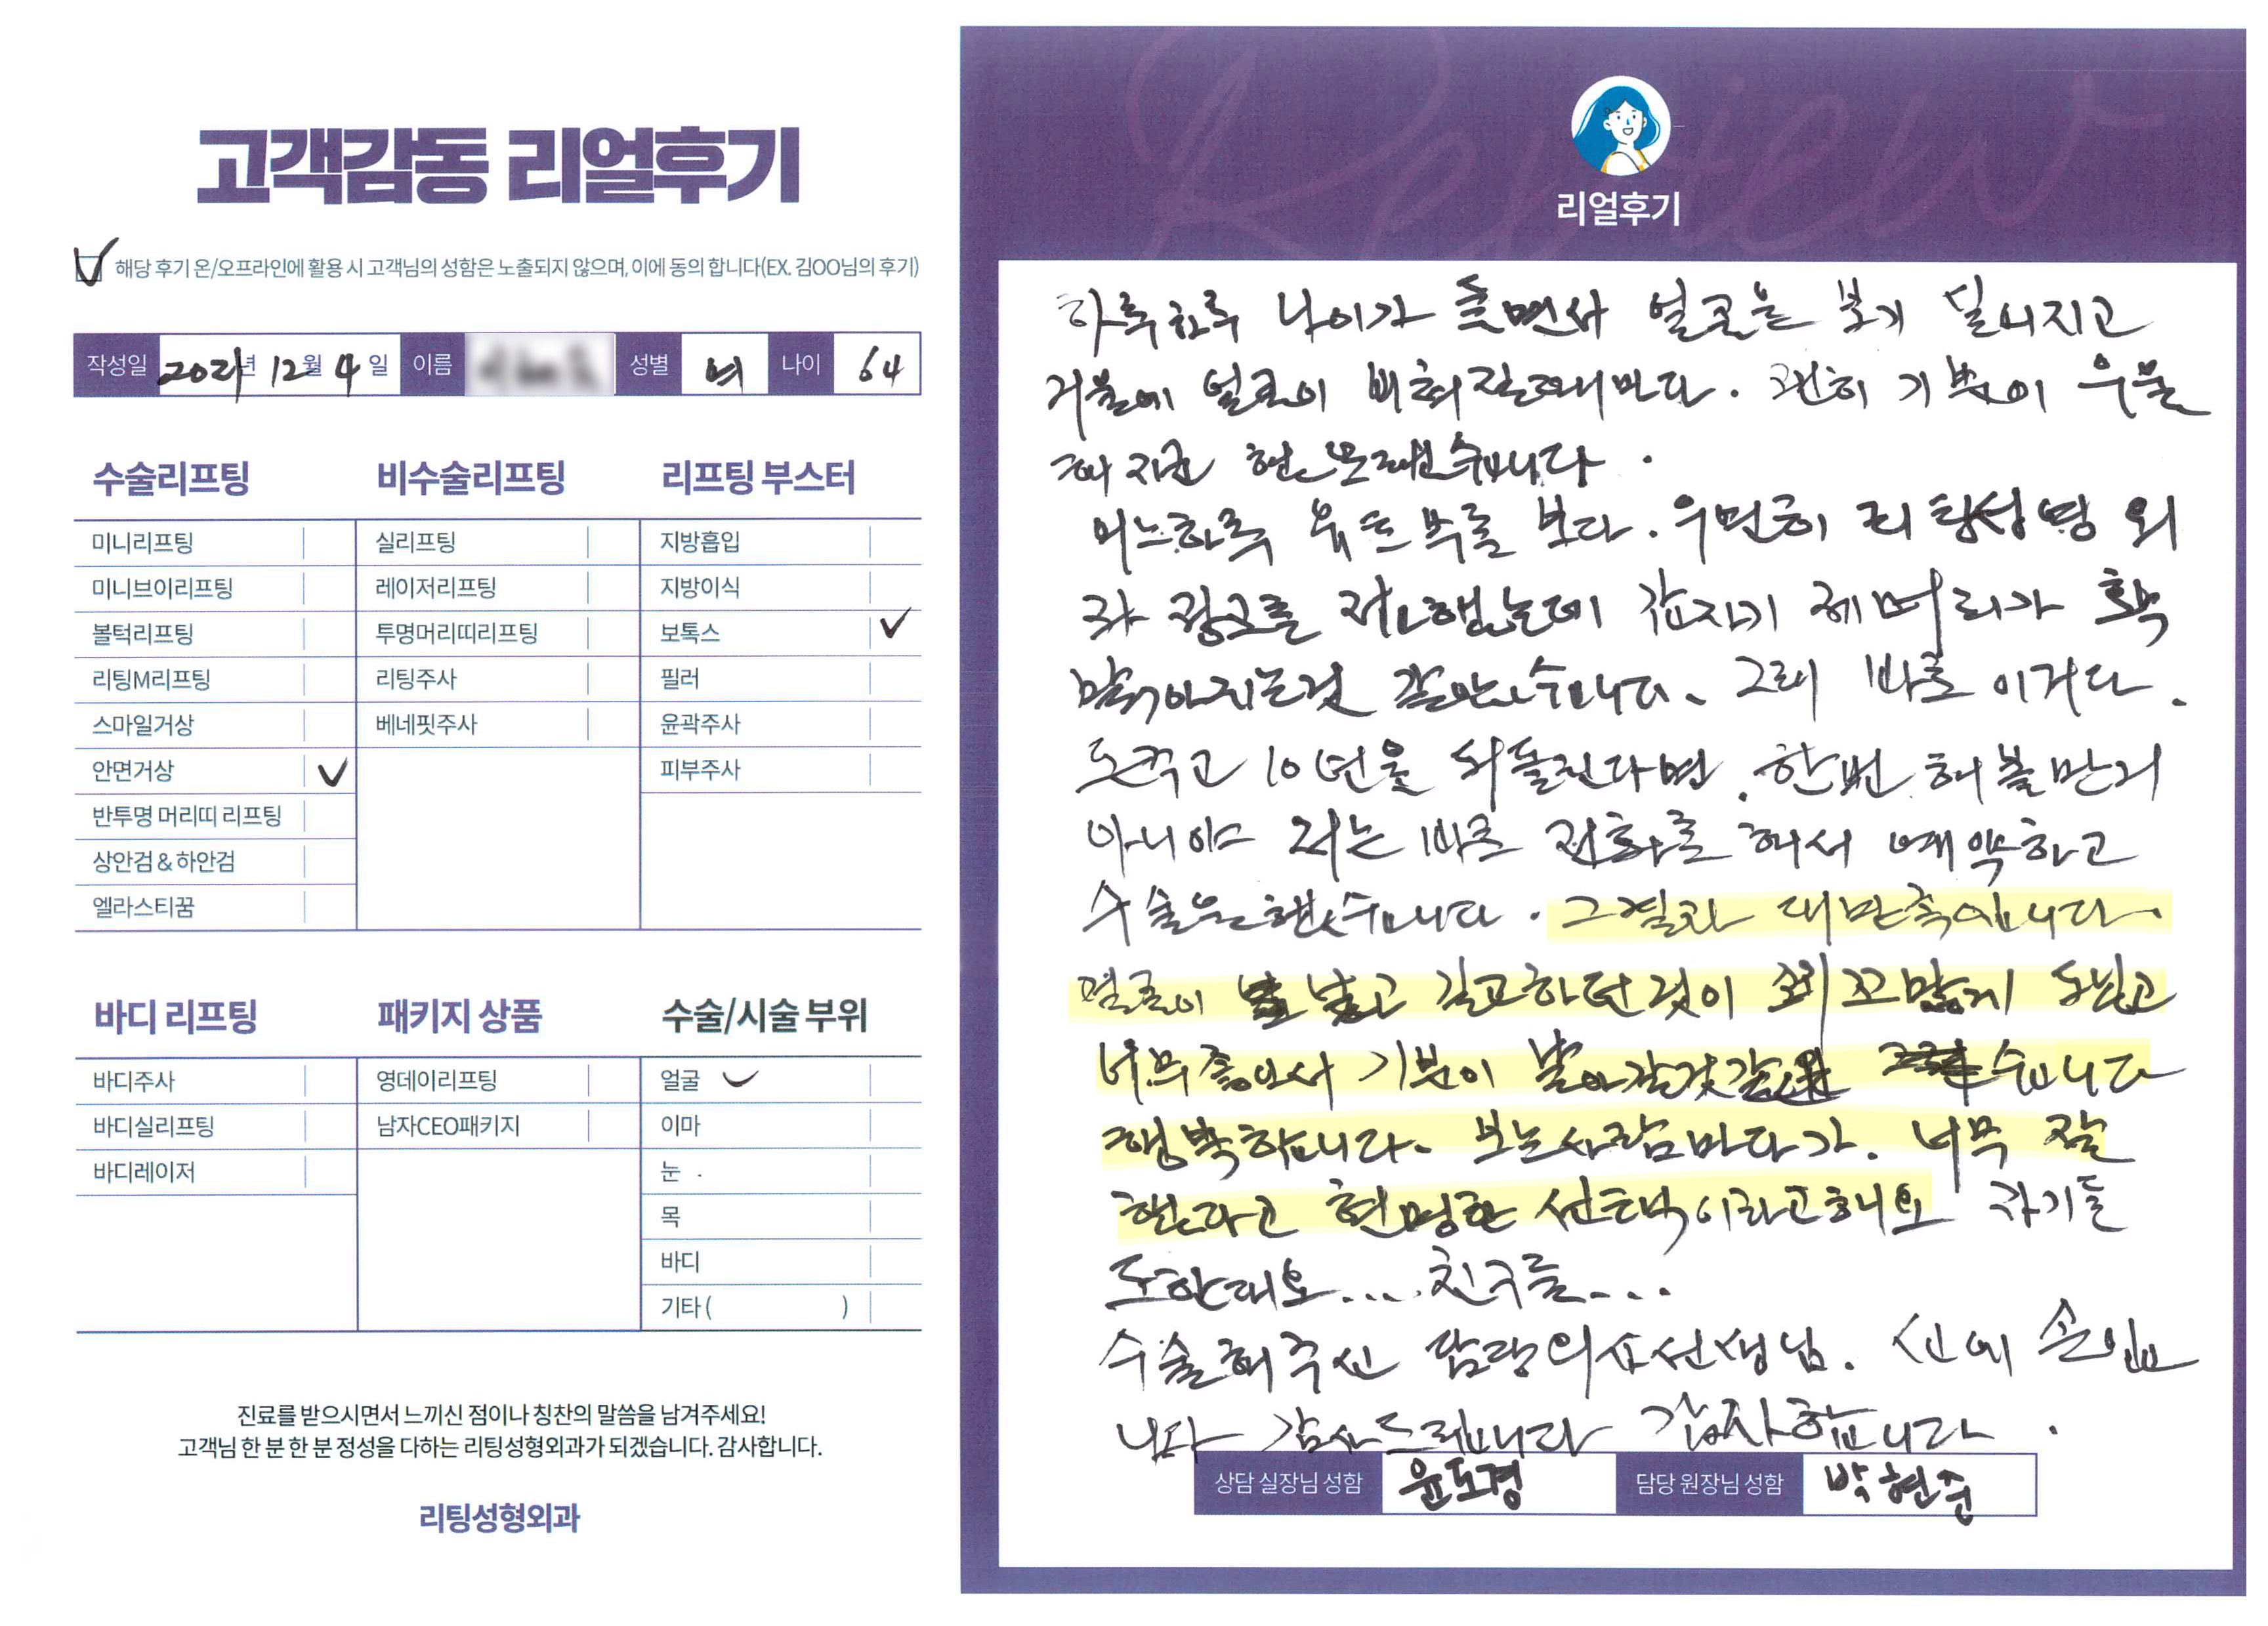 고객감동 리얼후기
해당 후기 온/오프라인에 활용 시 고객님의 성함은 노출되지 않으며, 이에 동의 합니다(EX. 김OO님의 후기)
작성일 2021년 12월 4일 이름 성별 여 나이 64
수술리프팅
미니리프팅
미니브이리프팅
볼턱리프팅
리팅M리프팅
스마일거상
안면거상
반투명 머리띠 리프팅
상안검 & 하안검
엘라스티꿈
비수술리프팅
실리프팅
레이저리프팅
투명머리띠리프팅
리팅주사
베네핏주사
리프팅 부스터
지방흡입
지방이식
보톡스
필러
윤곽주사
피부주사
바디 리프팅
바디주사
바디실리프팅
바디레이저
패키지 상품
영데이리프팅
남자CEO패키지
수술/시술 부위
얼굴
이마
눈
목
바디
기타 ( )
진료를 받으시면서 느끼신 점이나 칭찬의 말씀을 남겨주세요!
고객님 한 분 한 분 정성을 다하는 리팅성형외과가 되겠습니다. 감사합니다.
리팅성형외과
Review
리얼후기
하루하루 나이가 들면서 얼굴을 보기 싫어지고
거울에 얼굴이 비춰질때마다. 괜히 기분이 우울
해지곤 했습니다.
어느하루 유튜브를 보다. 우연히 리팅성형외
과 광고를 접했는데 갑자기 제머리가 확
맑아지는것 같았습니다. 그래 바로 이거다.
돈주고 10년을 되돌린다면. 한번 해볼만거
아니야 저는 바로 전화를 해서 예약하고
수술을했습니다. 그결과 대만족입니다.
얼굴이 넓고 길고하던것이 쪼맣게 되고
너무좋아서 기분이 날아갈것같습니다
행복합니다. 보는사람마다가. 너무 잘
했다고 현명한 선택이라고해요 자기들
도한대요.... 친구들...
수술해주신 담당의사선생님. 신에 손입
니다 감사드립니다 감사합니다.
상담 실장님 성함 윤도경 담당 원장님 성함 박현준